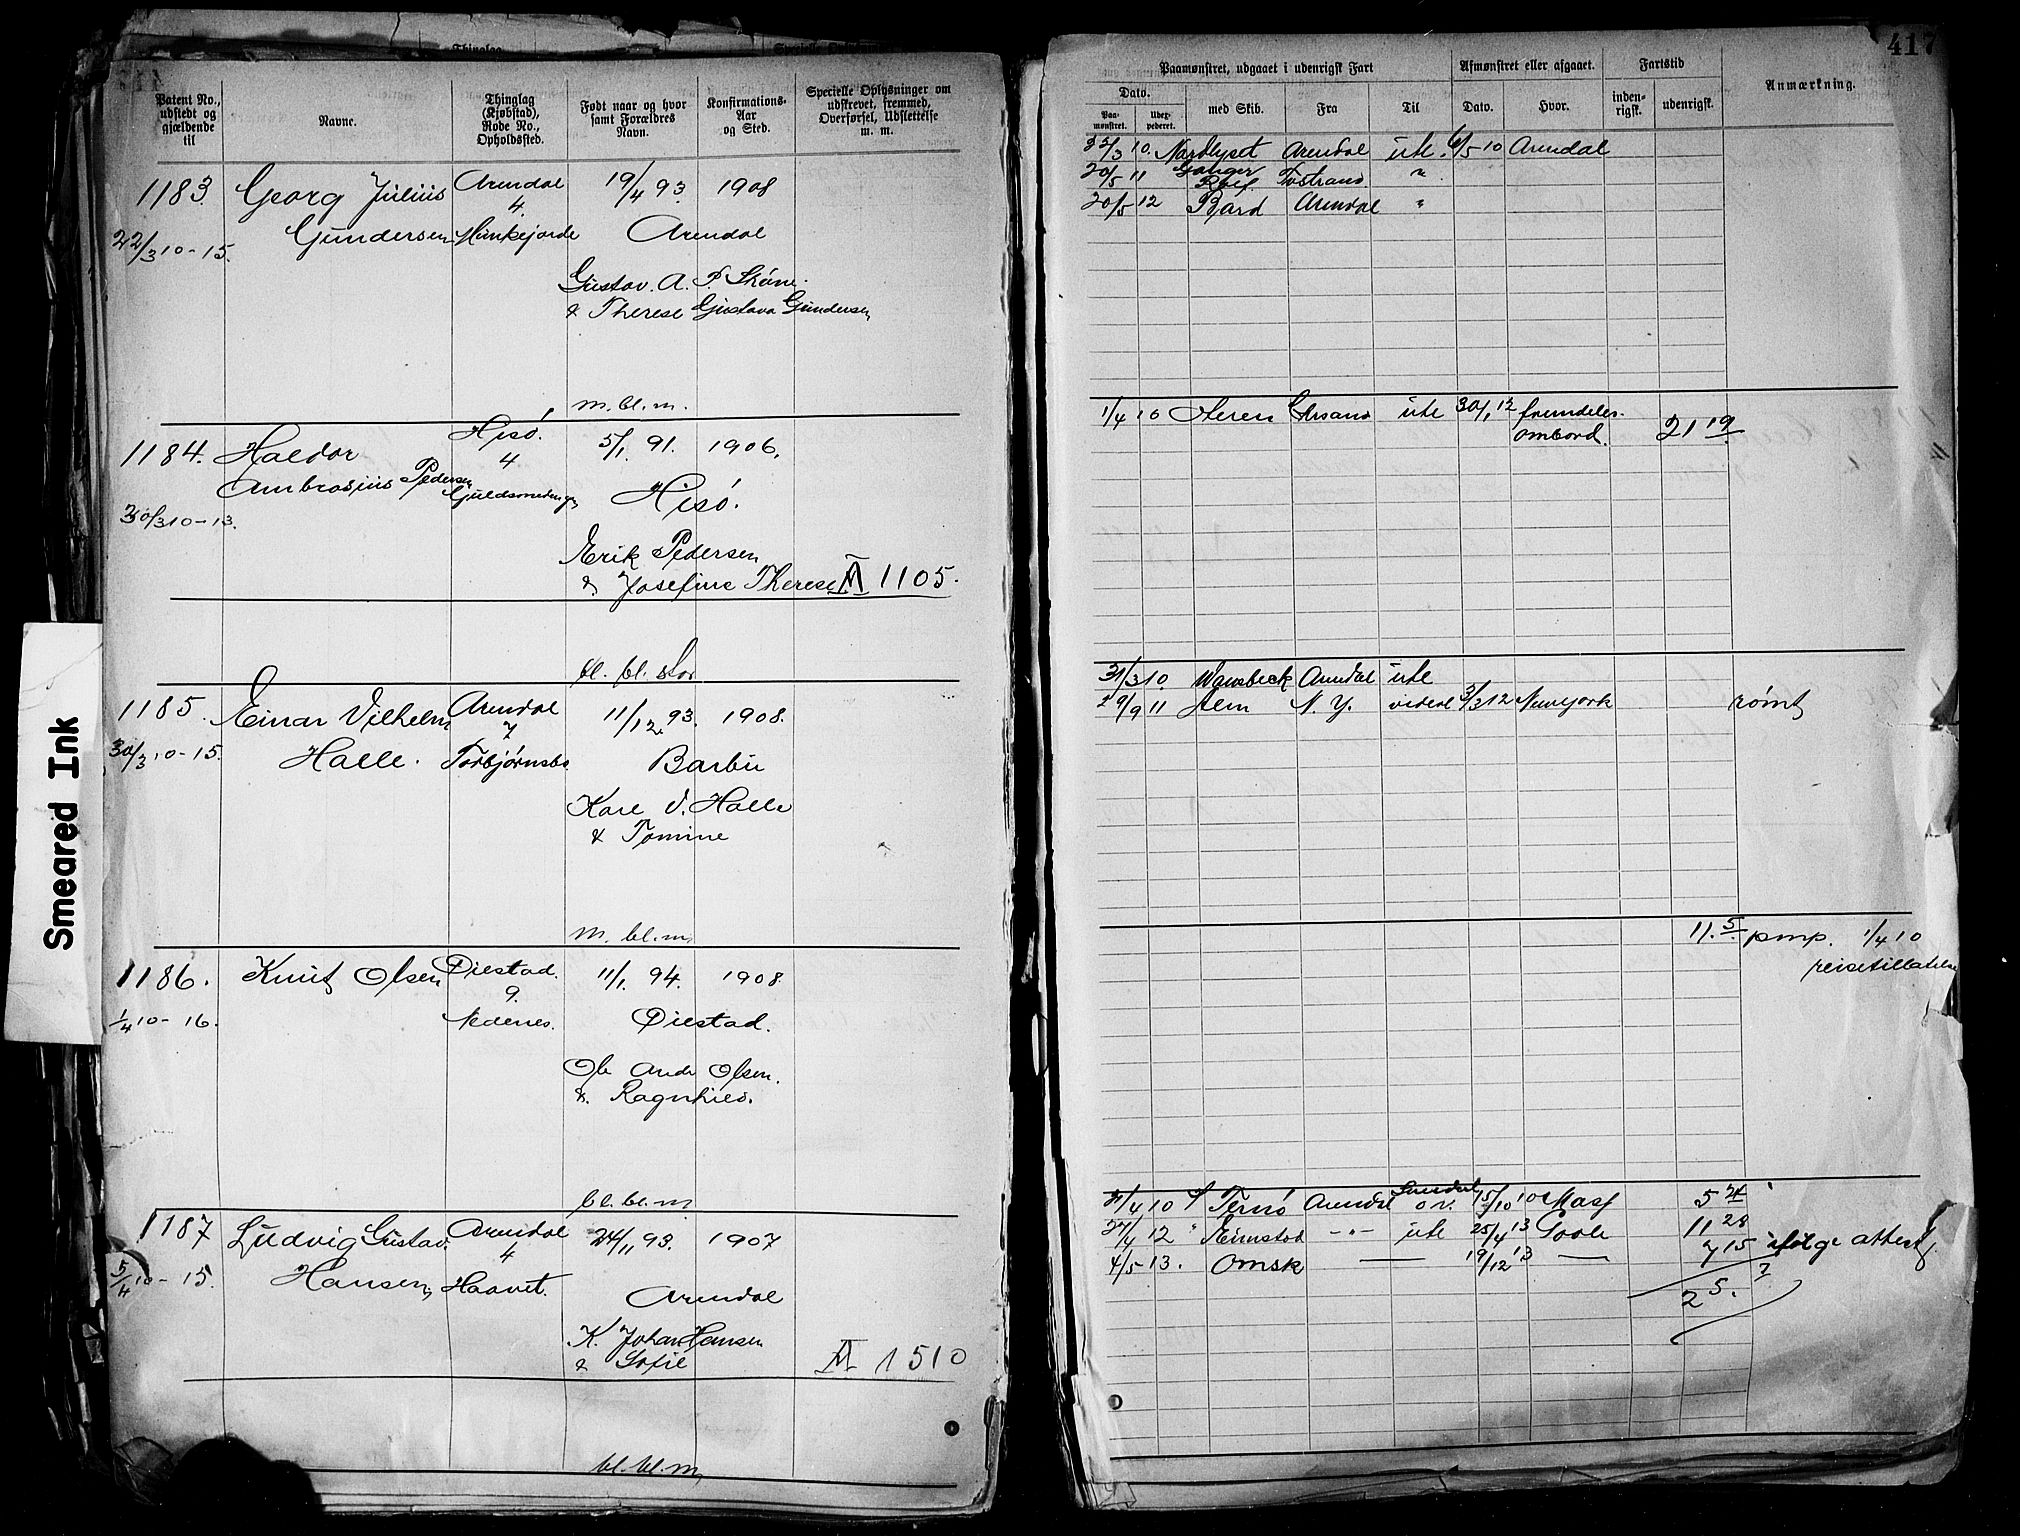 417
Patent No., udstedt og gjældende til
Navne.
Thinglag (Kjøbstad), Rode No., Opholdssted.
Født naar og hvor samt Forældres Navn.
Konfirmations-Aar og Sted.
Specielle Oplysninger om udskrevet, fremmed, Overførsel, Udslettelse m. m.
Paamønstret, udgaaet i udenrigsk Fart
Afmønstret eller afgaaet.
Fartstid
Anmærkning.
Dato.
med Skib.
Fra
Til
Dato.
Hvor.
inden-rigsk.
udenrigsk.
Paa-mønstret.
Udex-pederet.
1183 Georg Julius Arendal 19/4 93. 1908
4.
22/3 10-15. Gundersen Munkejorde Arendal
Gustav. A. P.
& Therese Gustava Gundersen
m. bl. m.
22/3 10. Nordlyset Arendal ute. 6/5 10 Arendal
20/5 11 Ganger Rolf "
20/5 12 Bard Arendal "
1184. Haldor Hisø. 5/1. 91. 1906.
Ambrosius Pedersen 4
30/3 10-13. Hisø.
Erik Pedersen
& Josefine Therese A 1105.
bl. bl. stor
1/4 10 Chrsand ute 30/1 12 fremdeles ombord. 21 19
1185. Einar Vilhelm Arendal 11/12. 93. 1908.
7
30/3 10-15. Halle. Torbjørnsbo Barbu
Karl V. Halle
& Tomine
m. bl. m.
31/3 10. Wansbeck Arendal ute
29/9 11 Alm N. Y. videre 3/3 12 Newyork rømt
1186. Knut Olsen Øiestad. 11/1. 94. 1908.
9.
1/4 10-16. Nedenes. Øiestad.
Ole Olsen.
& Ragnhild.
bl. bl. m
11. 5. pmp. 1/4 10
reisetilladelse
1187 Ludvig Gustav Arendal 24/11 93. 1907
4
5/4 10-15. Hansen, Haavet. Arendal
K. Johan Hansen
& Sofie A 1510
bl. bl. m,
/4 10 Ternø Arendal 15/10 10 5
/4 12 " Grimstad -"- ute 25/4 13 Goole 11 28
4/5 13. Omsk — 19/12 13 — 7 15 ifølge attest
2 5. 7
Smeared Ink